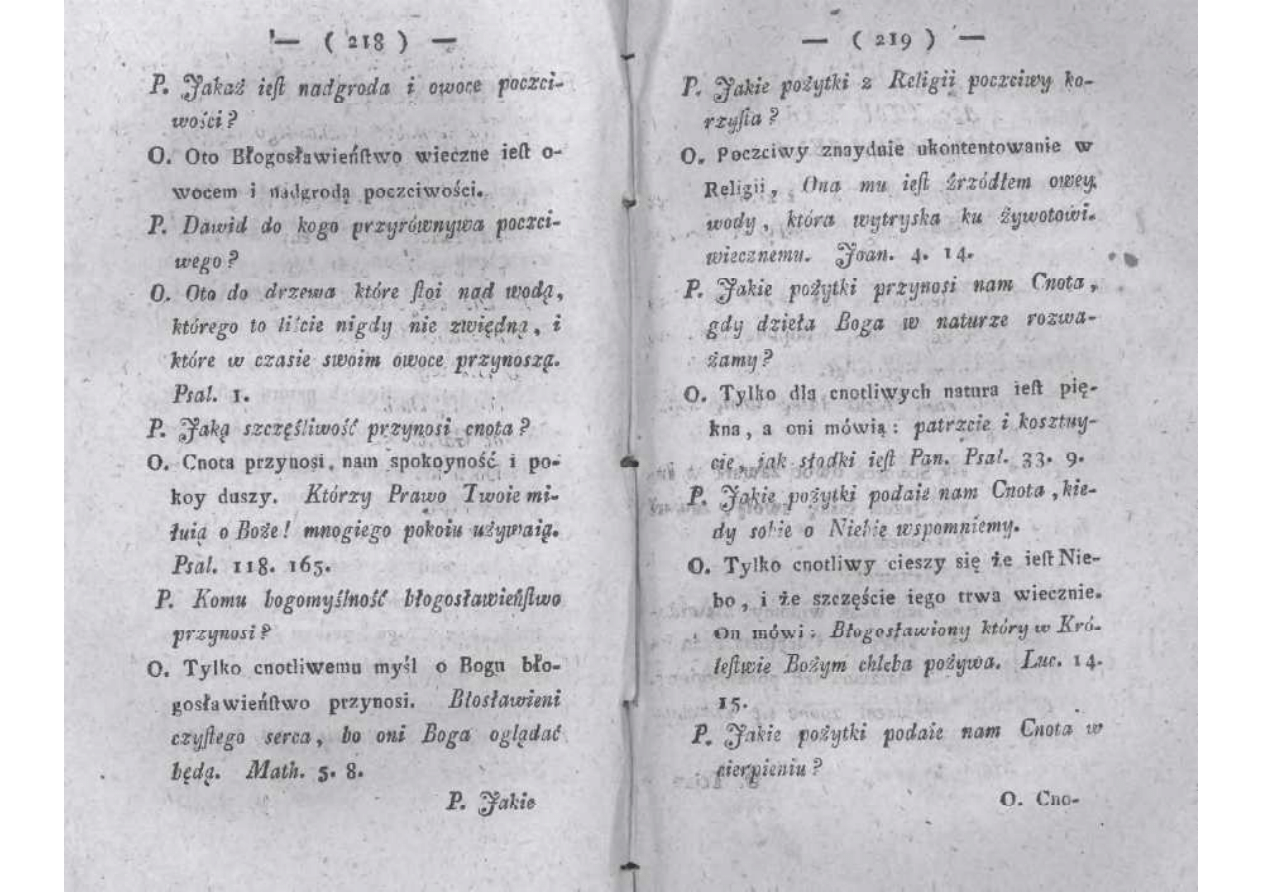 — ( 218 ) —
P. Jakaż ieſt nadgroda i owoce poczci-
wości?
O. Oto Błogosławieńſtwo wieczne ieſt o-
wocem i nadgrodą poczciwości.
P. Dawid do kogo przyrównywa poczci-
wego?
O. Oto do drzewa które ſtoi nąd wodą,
którego to liście nigdy nie zwiędną, i
które w czasie swoim owoce przynoszą.
Psal. 1.
P. Jaką szczęśliwość przynosi cnota?
O. Cnota przynosi nam spokoyność i po-
koy duszy. Którzy Prawo Twoie mi-
łuią o Boże! mnogiego pokoiu używaią.
Psal. 118. 165.
P. Komu bogomyślność błogosławieńſtwo
przynosi?
O. Tylko cnotliwemu myśl o Bogu bło-
gosławieńſtwo przynosi. Błosławieni
czyſtego serca, bo oni Boga oglądać
będą. Math. 5. 8.
P. Jakie
— ( 219 ) —
P. Jakie pożytki z Religii poczciwy ko-
rzyſta?
O. Poczciwy znayduie ukontentowanie w
Religii, Ona mu ieſt źrzódłem owey
wody, która wytryska ku żywotowi
wiecznemu. Joan. 4. 14.
P. Jakie pożytki przynosi nam Cnota,
gdy dzieła Boga w naturze rozwa-
żamy?
O. Tylko dla cnotliwych natura ieſt pię-
kna, a oni mówią: patrzcie i kosztuy-
cie, jak słodki ieſt Pan. Psal. 33. 9.
P. Jakie pożytki podaie nam Cnota, kie-
dy sobie o Niebie wspomniemy.
O. Tylko cnotliwy cieszy się że ieſt Nie-
bo, i że szczęście iego trwa wiecznie.
On mówi: Błogosławiony który w Kró-
leſtwie Bożym chleba pożywa. Luc. 14.
15.
P. Jakie pożytki podaie nam Cnota w
cierpieniu?
O. Cno-